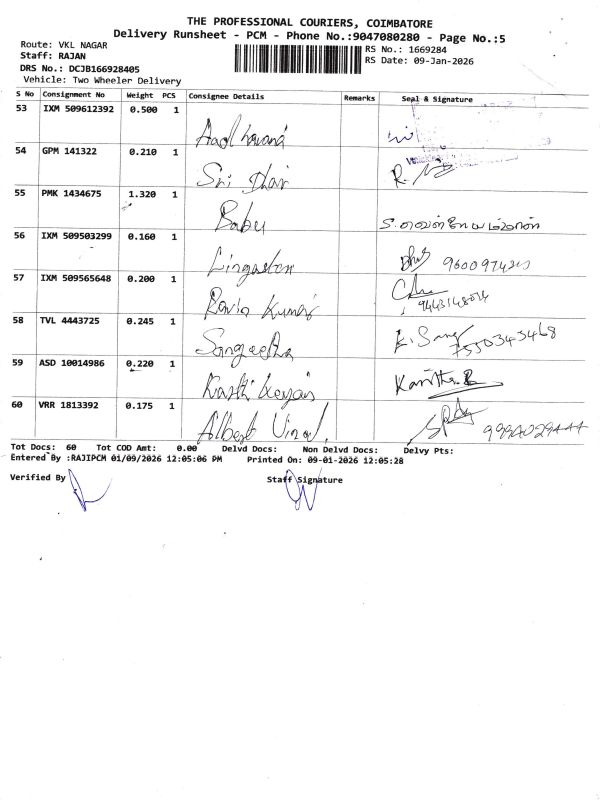 THE PROFESSIONAL COURIERS, COIMBATORE
Delivery Runsheet - PCM - Phone No.:9047080280 - Page No.:5
Route: VKL NAGAR
Staff: RAJAN
DRS No.: DCJB166928405
Vehicle: Two Wheeler Delivery
RS No.: 1669284
RS Date: 09-Jan-2026
S No Consignment No Weight PCS Consignee Details Remarks Seal & Signature
53 IXM 509612392 0.500 1
54 GPM 141322 0.210 1 Sri Dhar
55 PMK 1434675 1.320 1 Babu
56 IXM 509503299 0.160 1
57 IXM 509565648 0.200 1 Ravin Kumar
58 TVL 4443725 0.245 1 Sangeetha 7550343468
59 ASD 10014986 0.220 1 Karthikeyan
60 VRR 1813392 0.175 1 Albert
Tot Docs: 60 Tot COD Amt: 0.00 Delvd Docs: Non Delvd Docs: Delvy Pts:
Entered By :RAJIPCM 01/09/2026 12:05:06 PM Printed On: 09-01-2026 12:05:28
Verified By
Staff Signature